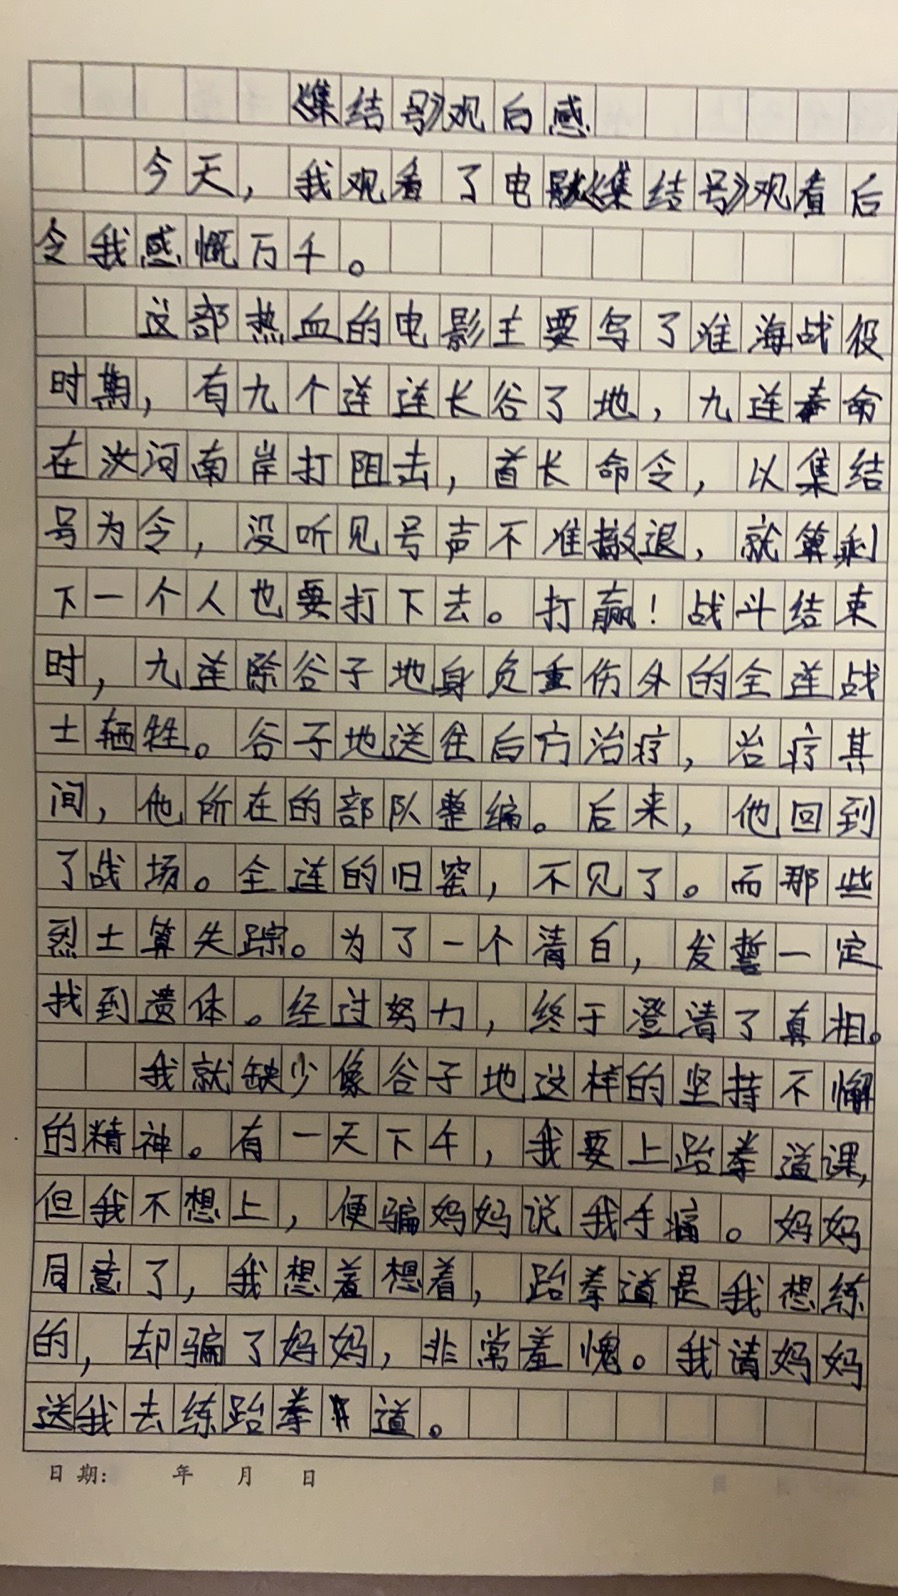 《集结号》观后感
今天，我观看了电影《集结号》观看后
令我感慨万千。
这部热血的电影主要写了淮海战役
时期，有九个连连长谷了地，九连奉命
在汝河南岸打阻击，首长命令，以集结
号为令，没听见号声不准撤退，就算剩
下一个人也要打下去。打赢！战斗结束
时，九连除谷子地身负重伤外的全连战
士牺牲。谷子地送往后方治疗，治疗其
间，他所在的部队整编。后来，他回到
了战场。全连的旧窑，不见了。而那些
烈士算失踪。为了一个清白，发誓一定
找到遗体。经过努力，终于澄清了真相。
我就缺少像谷子地这样的坚持不懈
的精神。有一天下午，我要上跆拳道课，
但我不想上，便骗妈妈说我手痛。妈妈
同意了，我想着想着，跆拳道是我想练
的，却骗了妈妈，非常羞愧。我请妈妈
送我去练跆拳道。
日期：　年　月　日